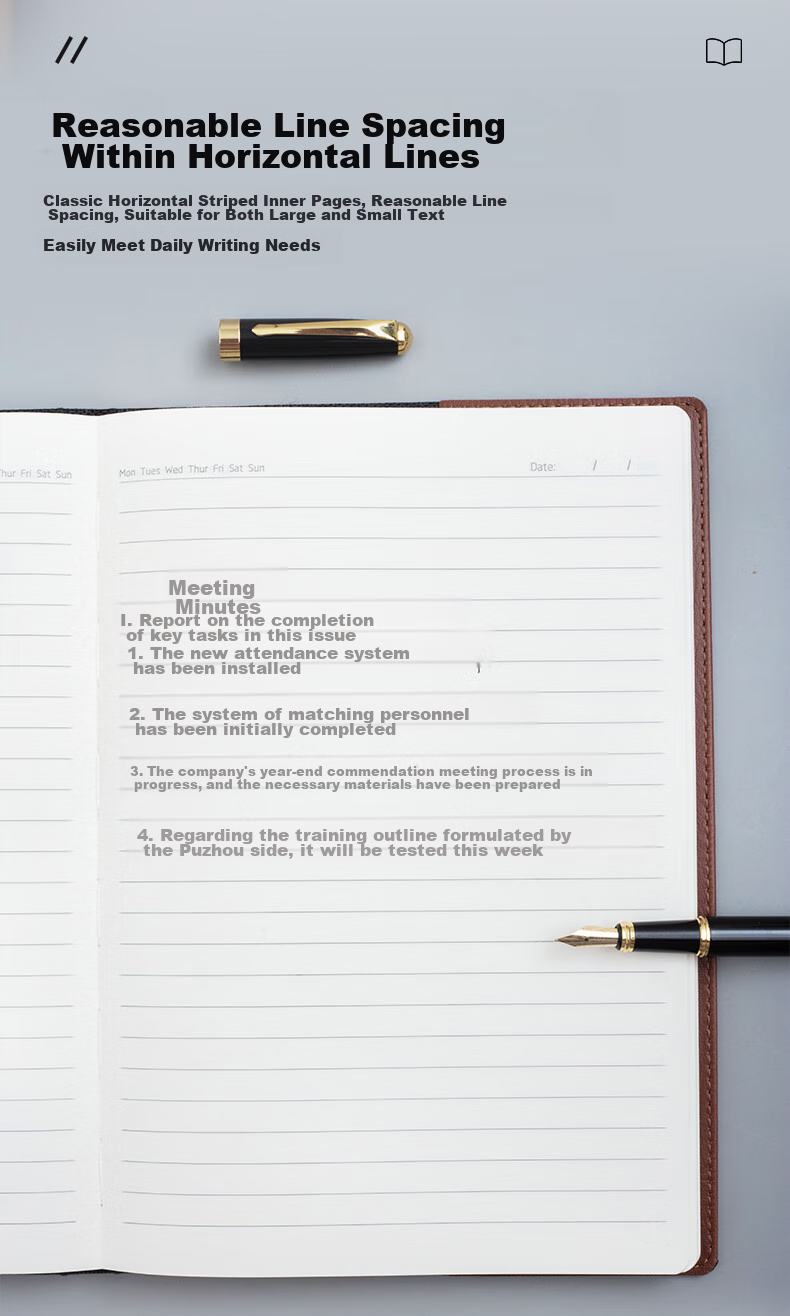 Reasonable Line Spacing
Within Horizontal Lines
Classic Horizontal Striped Inner Pages, Reasonable Line
Spacing, Suitable for Both Large and Small Text
Easily Meet Daily Writing Needs
hur Fri Sat Sun
Mon Tues Wed Thur Fri Sat Sun
Date: / /
Meeting
Minutes
I. Report on the completion
of key tasks in this issue
1. The new attendance system
has been installed
2. The system of matching personnel
has been initially completed
3. The company's year-end commendation meeting process is in
progress, and the necessary materials have been prepared
4. Regarding the training outline formulated by
the Puzhou side, it will be tested this week